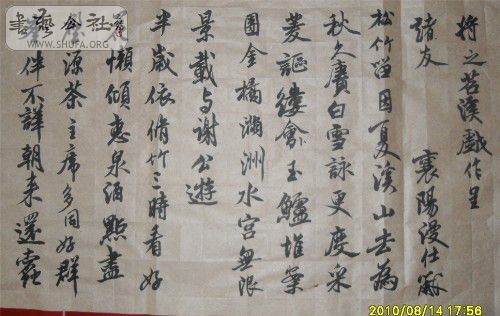 將之苕溪戲作呈
諸友 襄陽漫仕黻
松竹留因夏溪山去為
秋久賡白雪詠更度采
菱謳縷會玉鱸堆案
團金橘滿洲水宮無限
景載与謝公遊
半歲依脩竹三時看好
花懶傾惠泉酒點盡
壑源茶主席多同好群
峰伴不譁朝來還蠹
WWW.SHUFA.ORG
2010/08/14 17:56